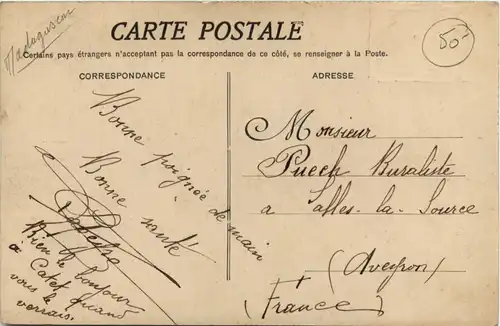 Madagascar
50
CARTE POSTALE
Certains pays étrangers n'acceptant pas la correspondance de ce côté, se renseigner à la Poste.
CORRESPONDANCE
ADRESSE
Bonne poignée de main
Bonne santé
Bien le bonjour
à Catet quand
vous le
verrais.
Monsieur
Puech Buraliste
a Salles-la-Source
(Aveyron)
(France)